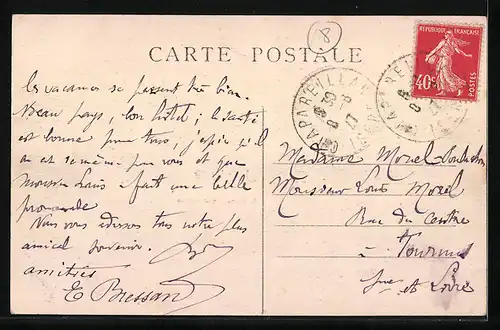 8
CARTE POSTALE
REPUBLIQUE FRANÇAISE
40c
POSTES
CAPAREILLAN
ISERE
les vacances se passent très bien.
Beau pays, bon hôtel ; la santé
est bonne pour tous, j'espère qu'il
en est de même pour vous et que
Monsieur Louis a fait une belle
promenade
Nous vous adressons tous notre plus
amical souvenir.
amitiés
E Bressand
Madame Morel
Monsieur Louis Morel
Rue du Centre
à Tournus
et Loire